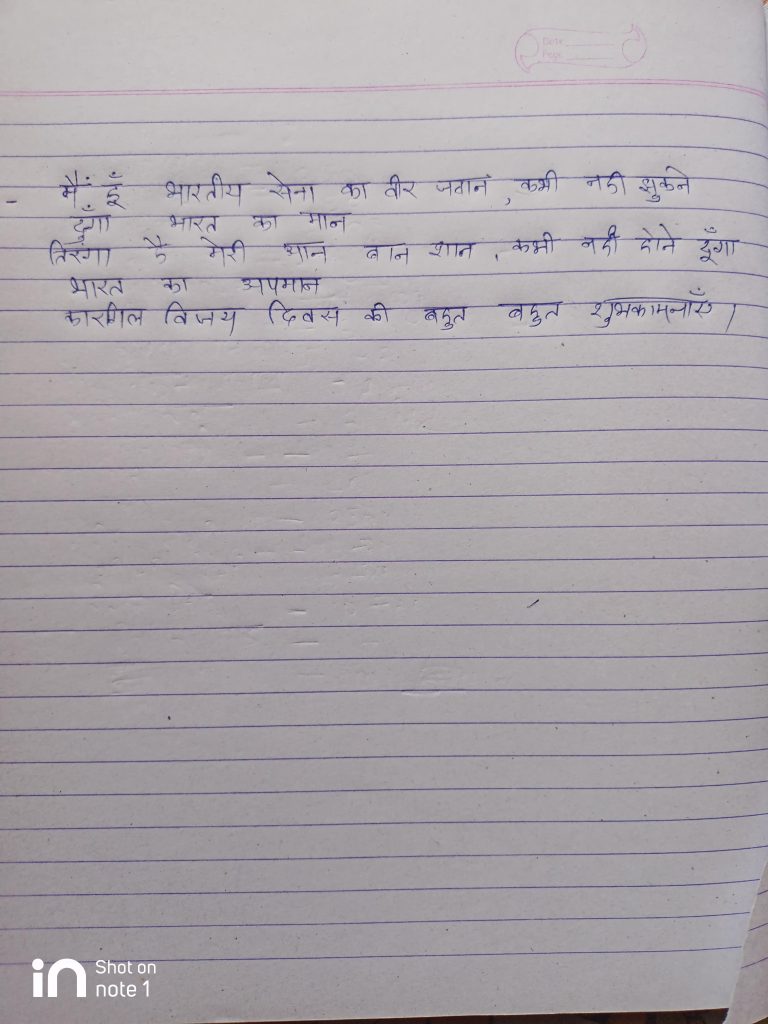 Date
Page
- मैं हूँ भारतीय सेना का वीर जवान, कभी नही झुकने
दूँगा भारत का मान
तिरंगा है मेरी आन बान शान, कभी नही होने दूँगा
भारत का अपमान
कारगिल विजय दिवस की बहुत बहुत शुभकामनाएँ।
Shot on
note 1